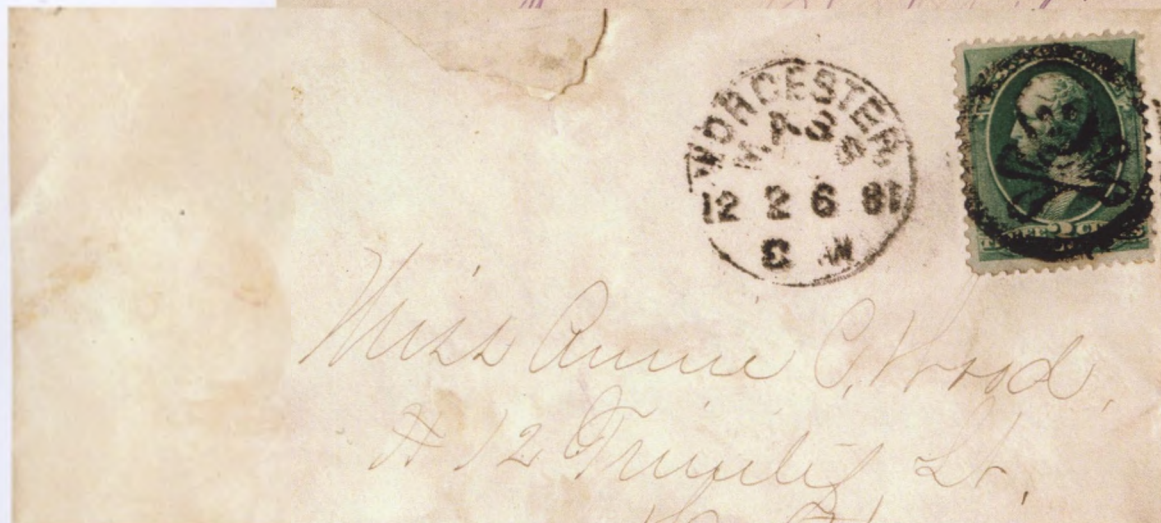 WORCESTER
MASS
12 2 6 81
Miss Annie C. Wood,
# 12 Trinity St.,